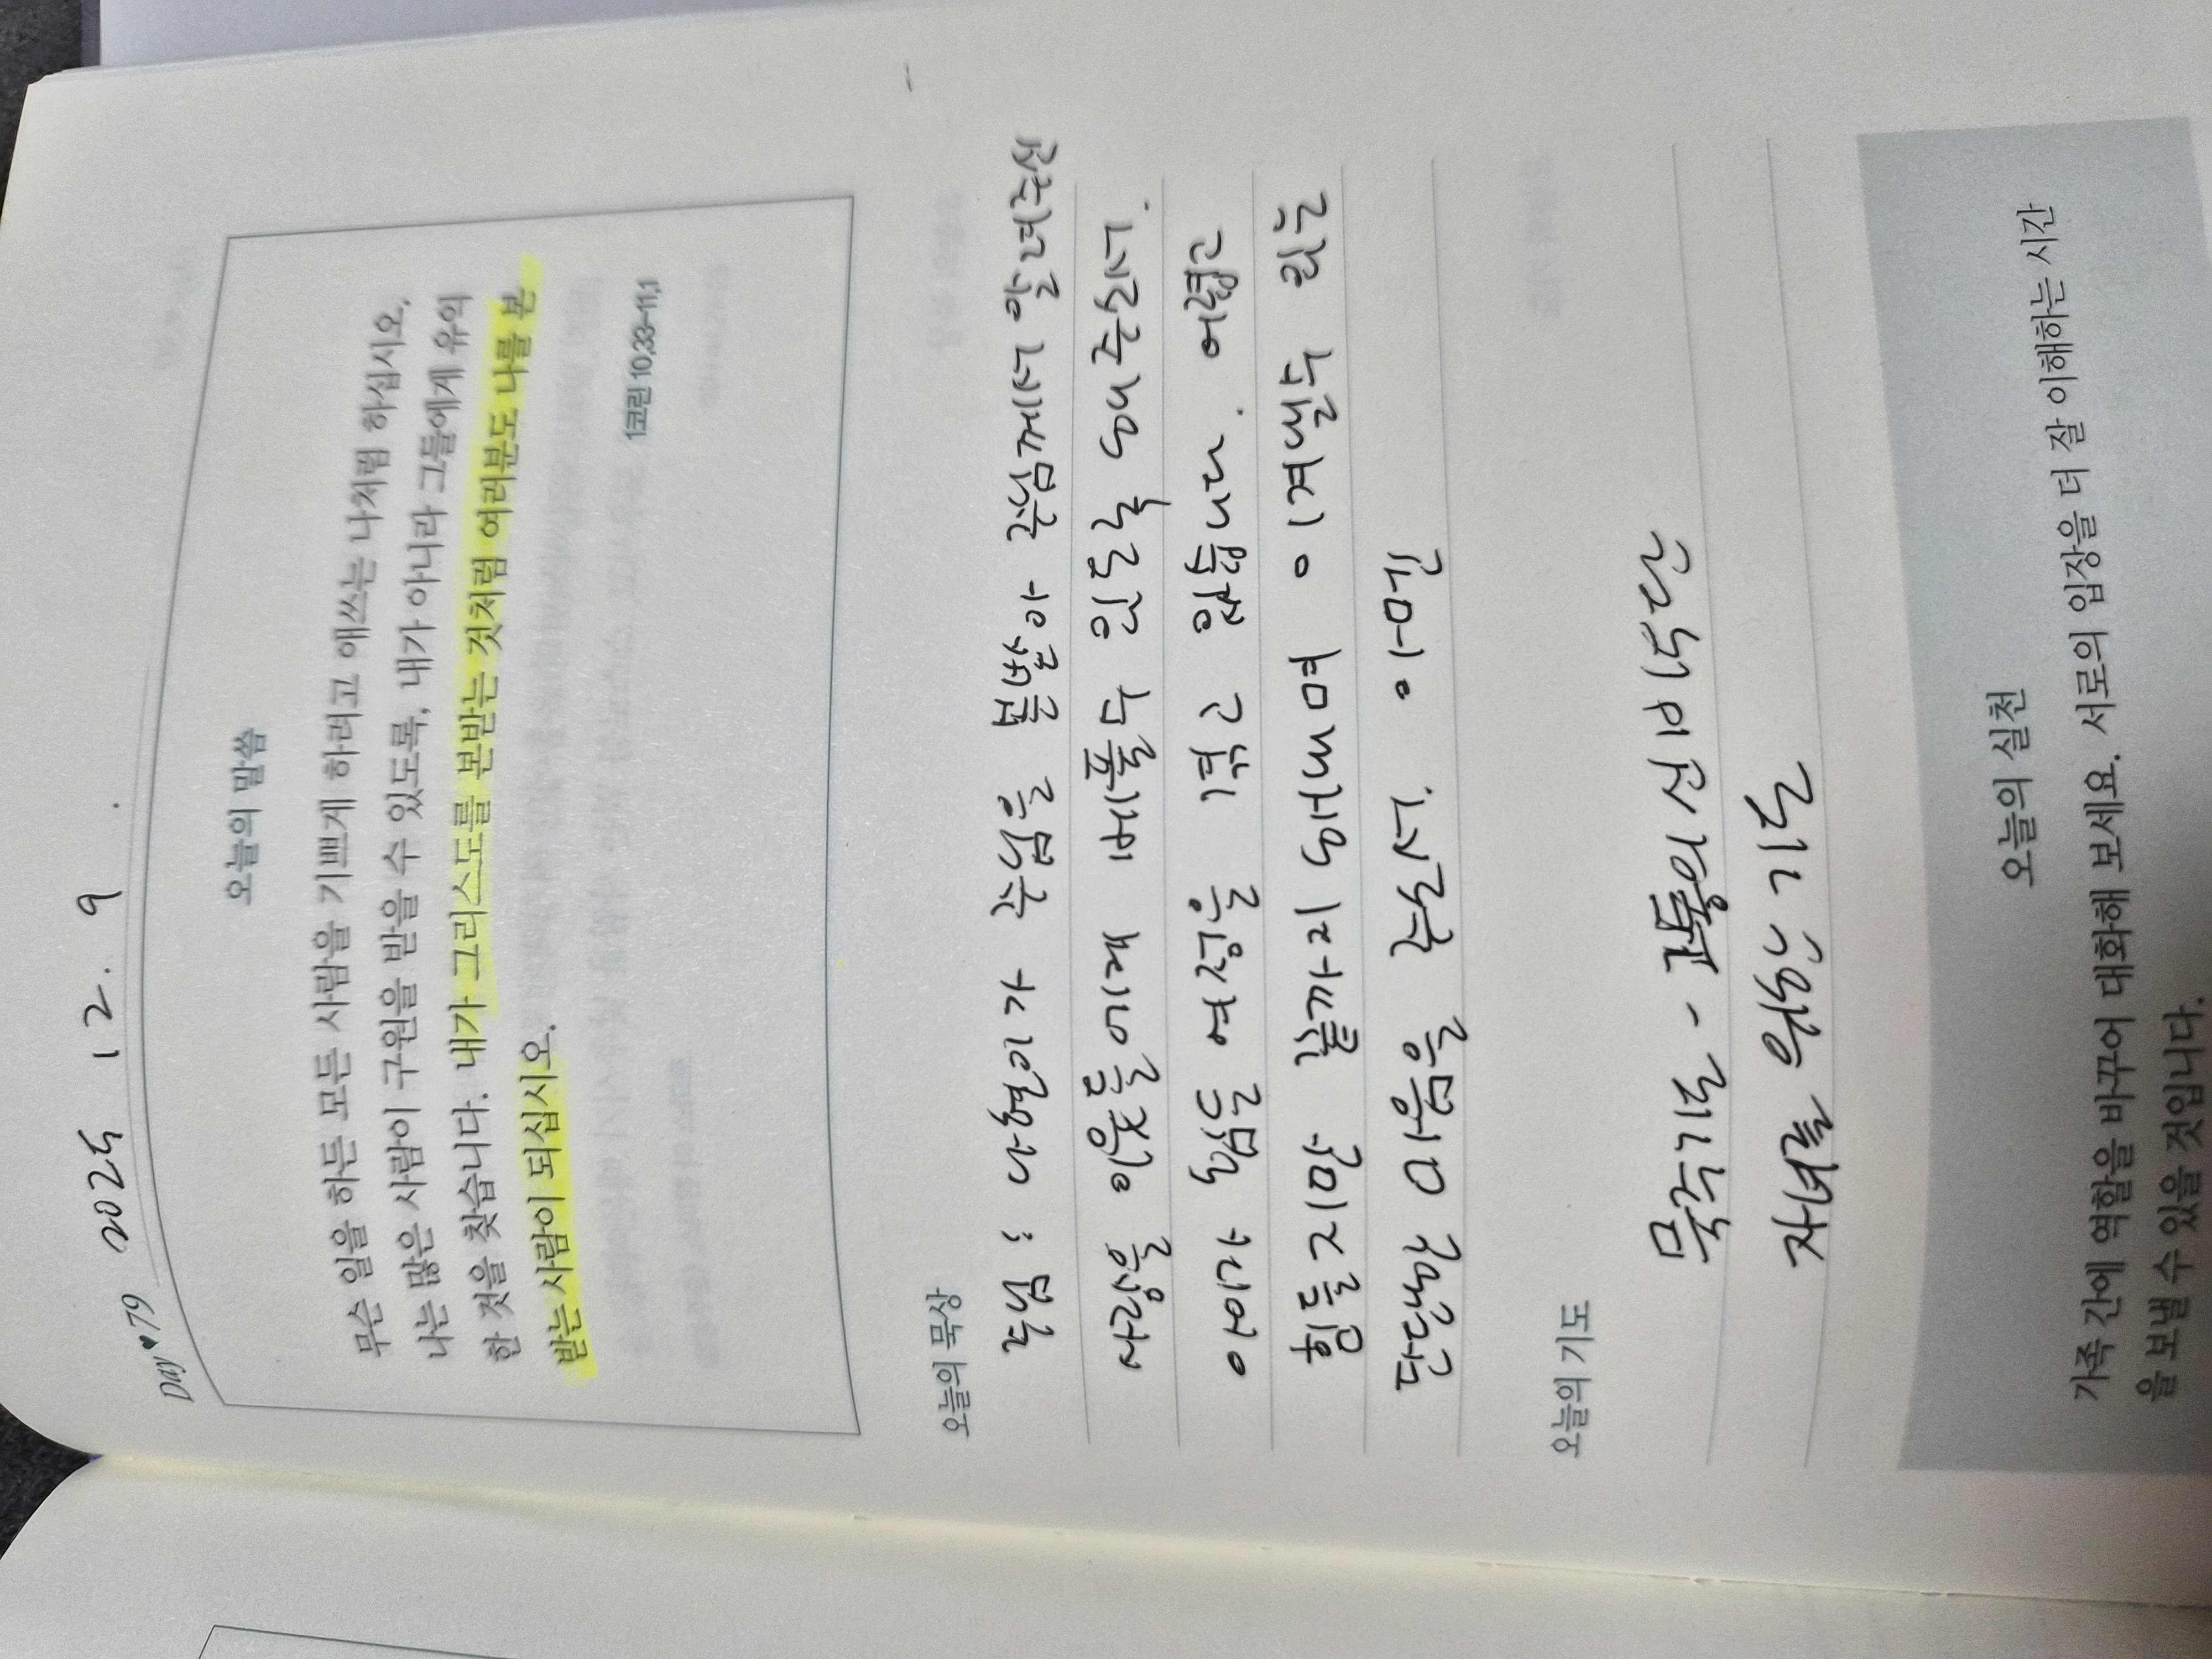 Day♥79 2025 12. 9.
오늘의 말씀
무슨 일을 하든 모든 사람을 기쁘게 하려고 애쓰는 나처럼 하십시오.
나는 많은 사람이 구원을 받을 수 있도록, 내가 아니라 그들에게 유익
한 것을 찾습니다. 내가 그리스도를 본받는 것처럼 여러분도 나를 본
받는 사람이 되십시오.
1코린 10,33-11,1
오늘의 묵상
주님 ; 나약한 제가 주님을 주님께서 을려주신
사랑을 이웃들에게 베풀 수 있도록 하여주소서.
이어가 주님을 여정을 걷고 있습니다. 어렵고
힘들지만 끝까지 도와 이겨낼수 있는
단단한 마음을 주소서. 아멘
오늘의 기도
묵주기도 - 고통의 신비 5단
자녀를 위한 기도
오늘의 실천
가족 간에 역할을 바꾸어 대화해 보세요. 서로의 입장을 더 잘 이해하는 시간
을 보낼 수 있을 것입니다.